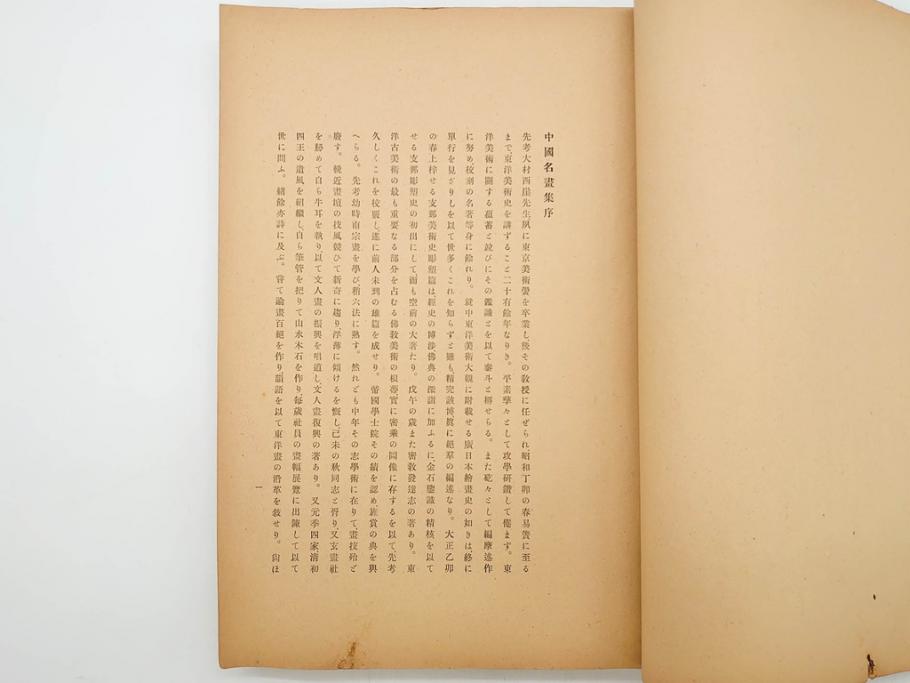 中國名畫集序
先考大村西崖先生夙に東京美術黌を卒業し、後その教授に任ぜられ昭和丁卯の春易簀に至る
まで、東洋美術史を講ずること二十有餘年なりき。平素孳々として攻學研鑽して倦まず。東
洋美術に關する蘊蓄と說びにその鑑識とを以て泰斗と稱せらる。また矻々として編摩述作
に努め、校刻の名著等身に餘れり。就中東洋美術大觀に附載せる廣日本繪畫史の如きは、終に
單行を見ざりしを以て世多くこれを知らずと雖も、精究該博眞に絕羣の編述なり。大正乙卯
の春上梓せる支那美術史彫塑篇は、經史の博渉佛典の深詣に加ふるに、金石鑒識の精核を以て
せる支那彫塑史の初出にして而も空前の大著たり。戊午の歲また密敎發達志の著あり。東
洋古美術の最も重要なる部分を占むる佛敎美術の根蔕實に密乘の圖像に存するを以て、先考
久しくこれを校覈し、遂に前人未到の雄篇を成せり。帝國學士院その績を認め旌賞の典を與
へらる。先考幼時南宗畫を學び、稍六法に熟す。然れども中年その志學術に在りて、畫技殆ど
廢す。輓近畫壇の技風競ひて新奇に趨り、浮薄に傾けるを慨し、己未の秋同志と胥り、又玄畫社
を勝めて自ら牛耳を執り、以て文人畫の振興を唱道し、文人畫復興の著あり。又元季四家淸初
四王の遺風を祖續し、自ら筆管を把りて山水木石を作り、每歲社員の畫幅展覽に出陳して以て
世に問ふ。緖餘亦詩に及ぶ。嘗て論畫百絕を作り、韻語を以て東洋畫の沿革を敍せり。尙ほ
一